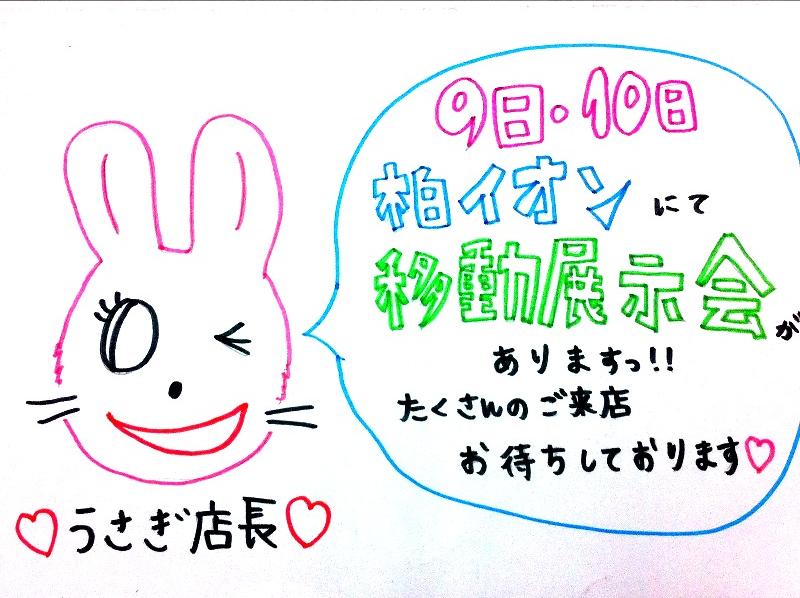 9日・10日
柏イオンにて
移動展示会が
ありますっ!!
たくさんのご来店
お待ちしております♡
♡うさぎ店長♡